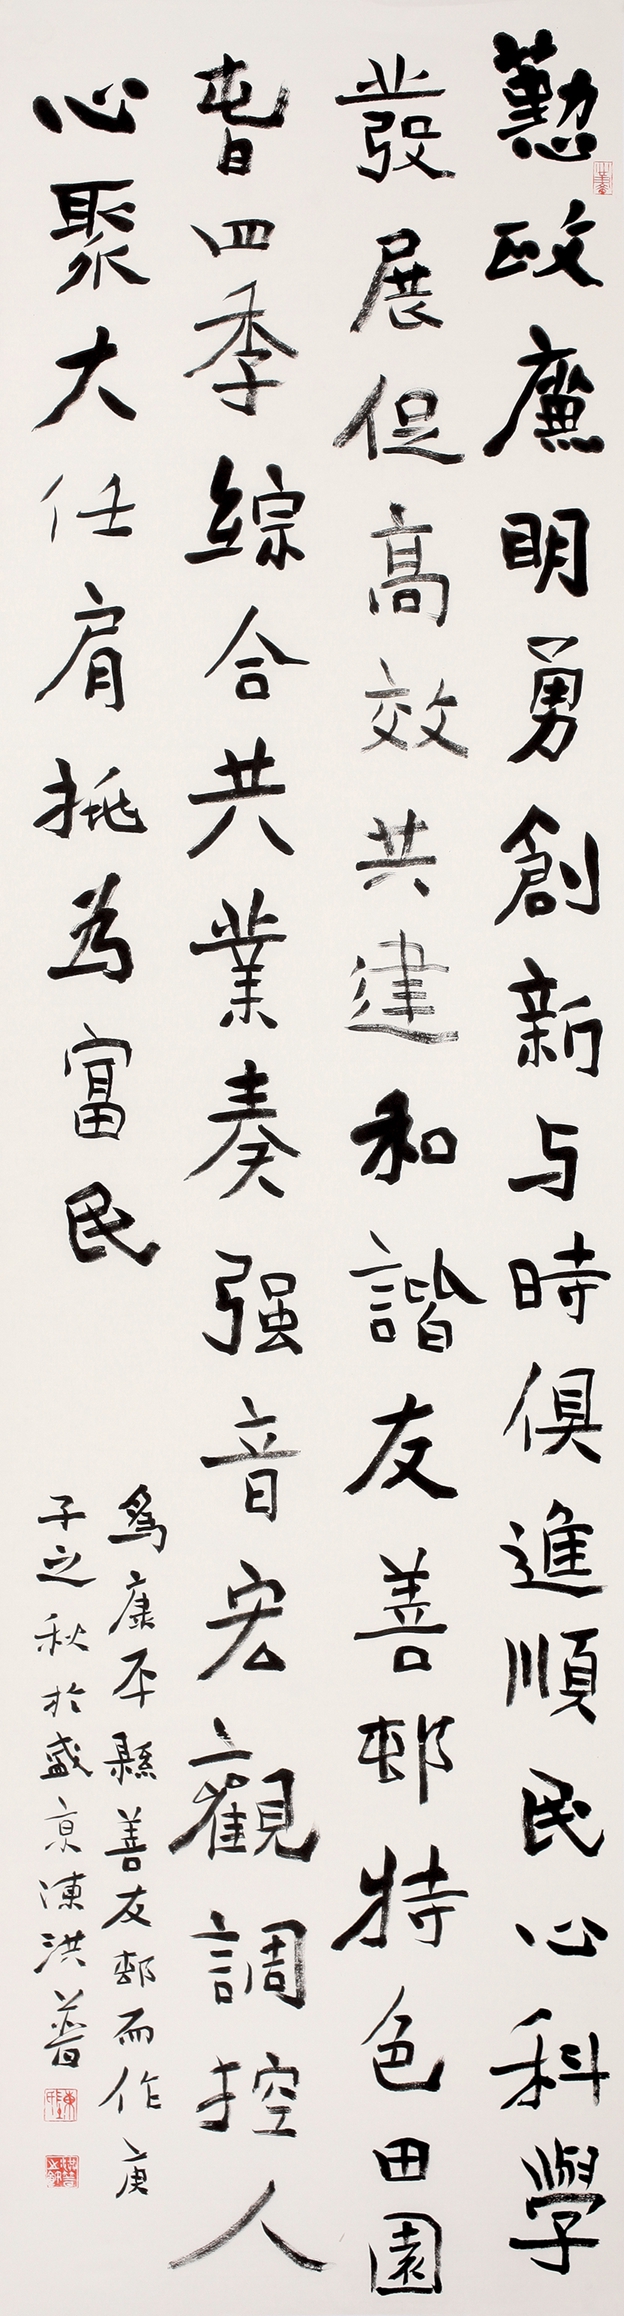 懃政廉明勇創新与時俱進順民心科學
發展促高效共建和諧友善邨特色田園
旾四季綜合共業奏强音宏觀調控人
心聚大任肩挑為富民
爲康平縣善友邨而作庚
子之秋於盛京陳洪普